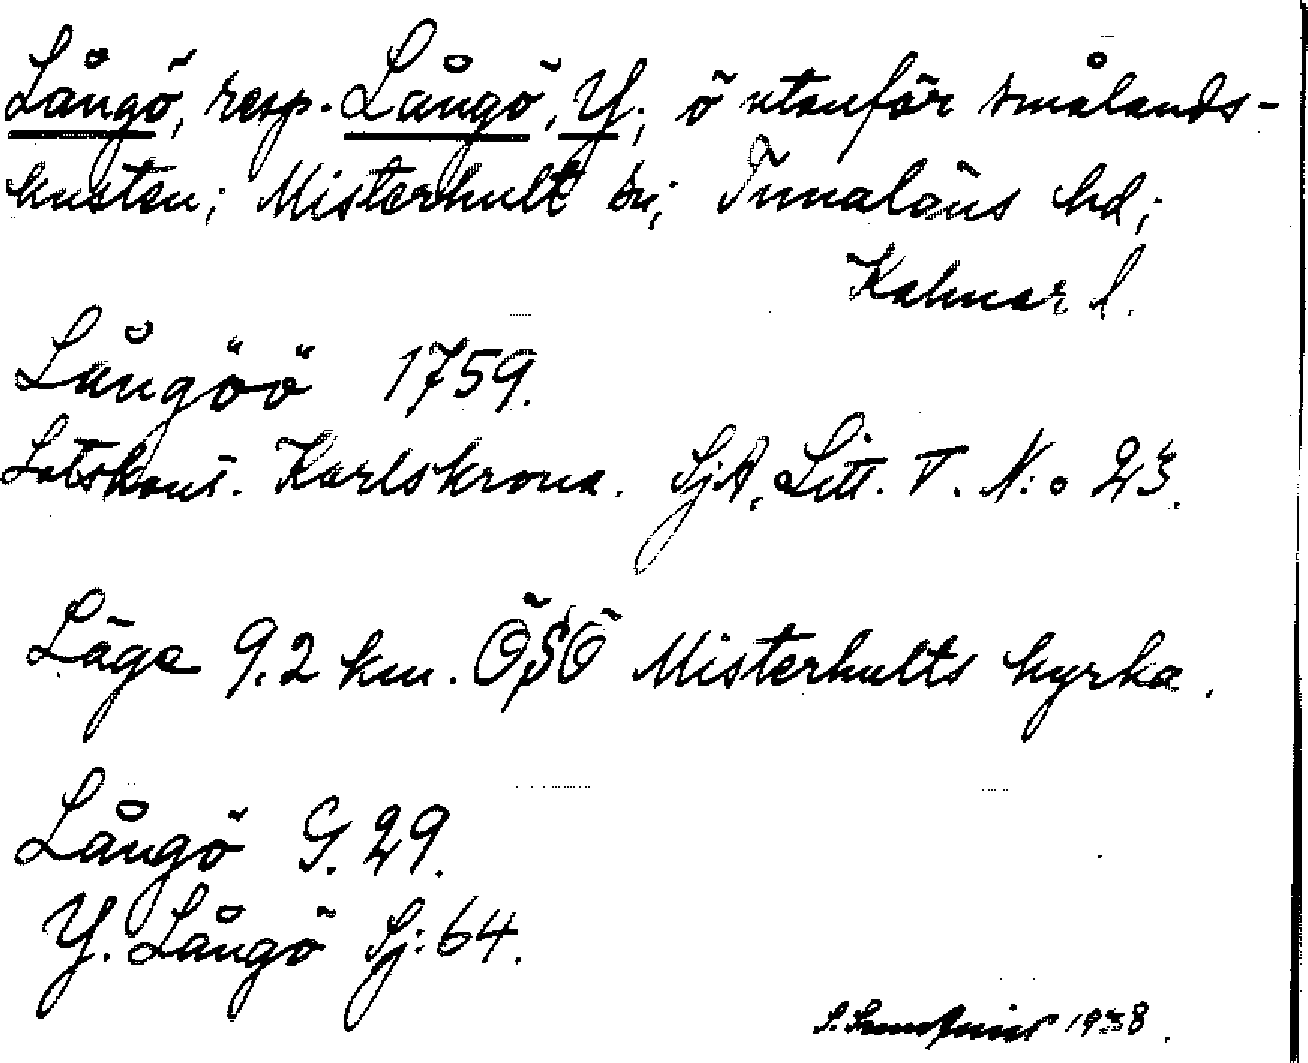 Långö, resp. Långö, Y.; ö utanför smålands-
kusten; Misterhult sn; Tunaläns hd;
Kalmar l.
Långöö 1759.
Lotskont. Karlskrona. SjA, Litt. T. N:o 23.
Läge 9.2 km. ÖSÖ Misterhults kyrka.
Långö G. 29.
Y. Långö Sj: 64.
1938.